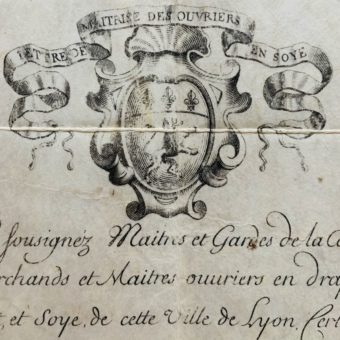 LETTRE DE MAITRISE DES OUVRIERS EN SOYE
sousignez Maitres et Gardes de la Co
rchands et Maitres ouuriers en drap
t, et Soye, de cette Ville de Lyon, Cert